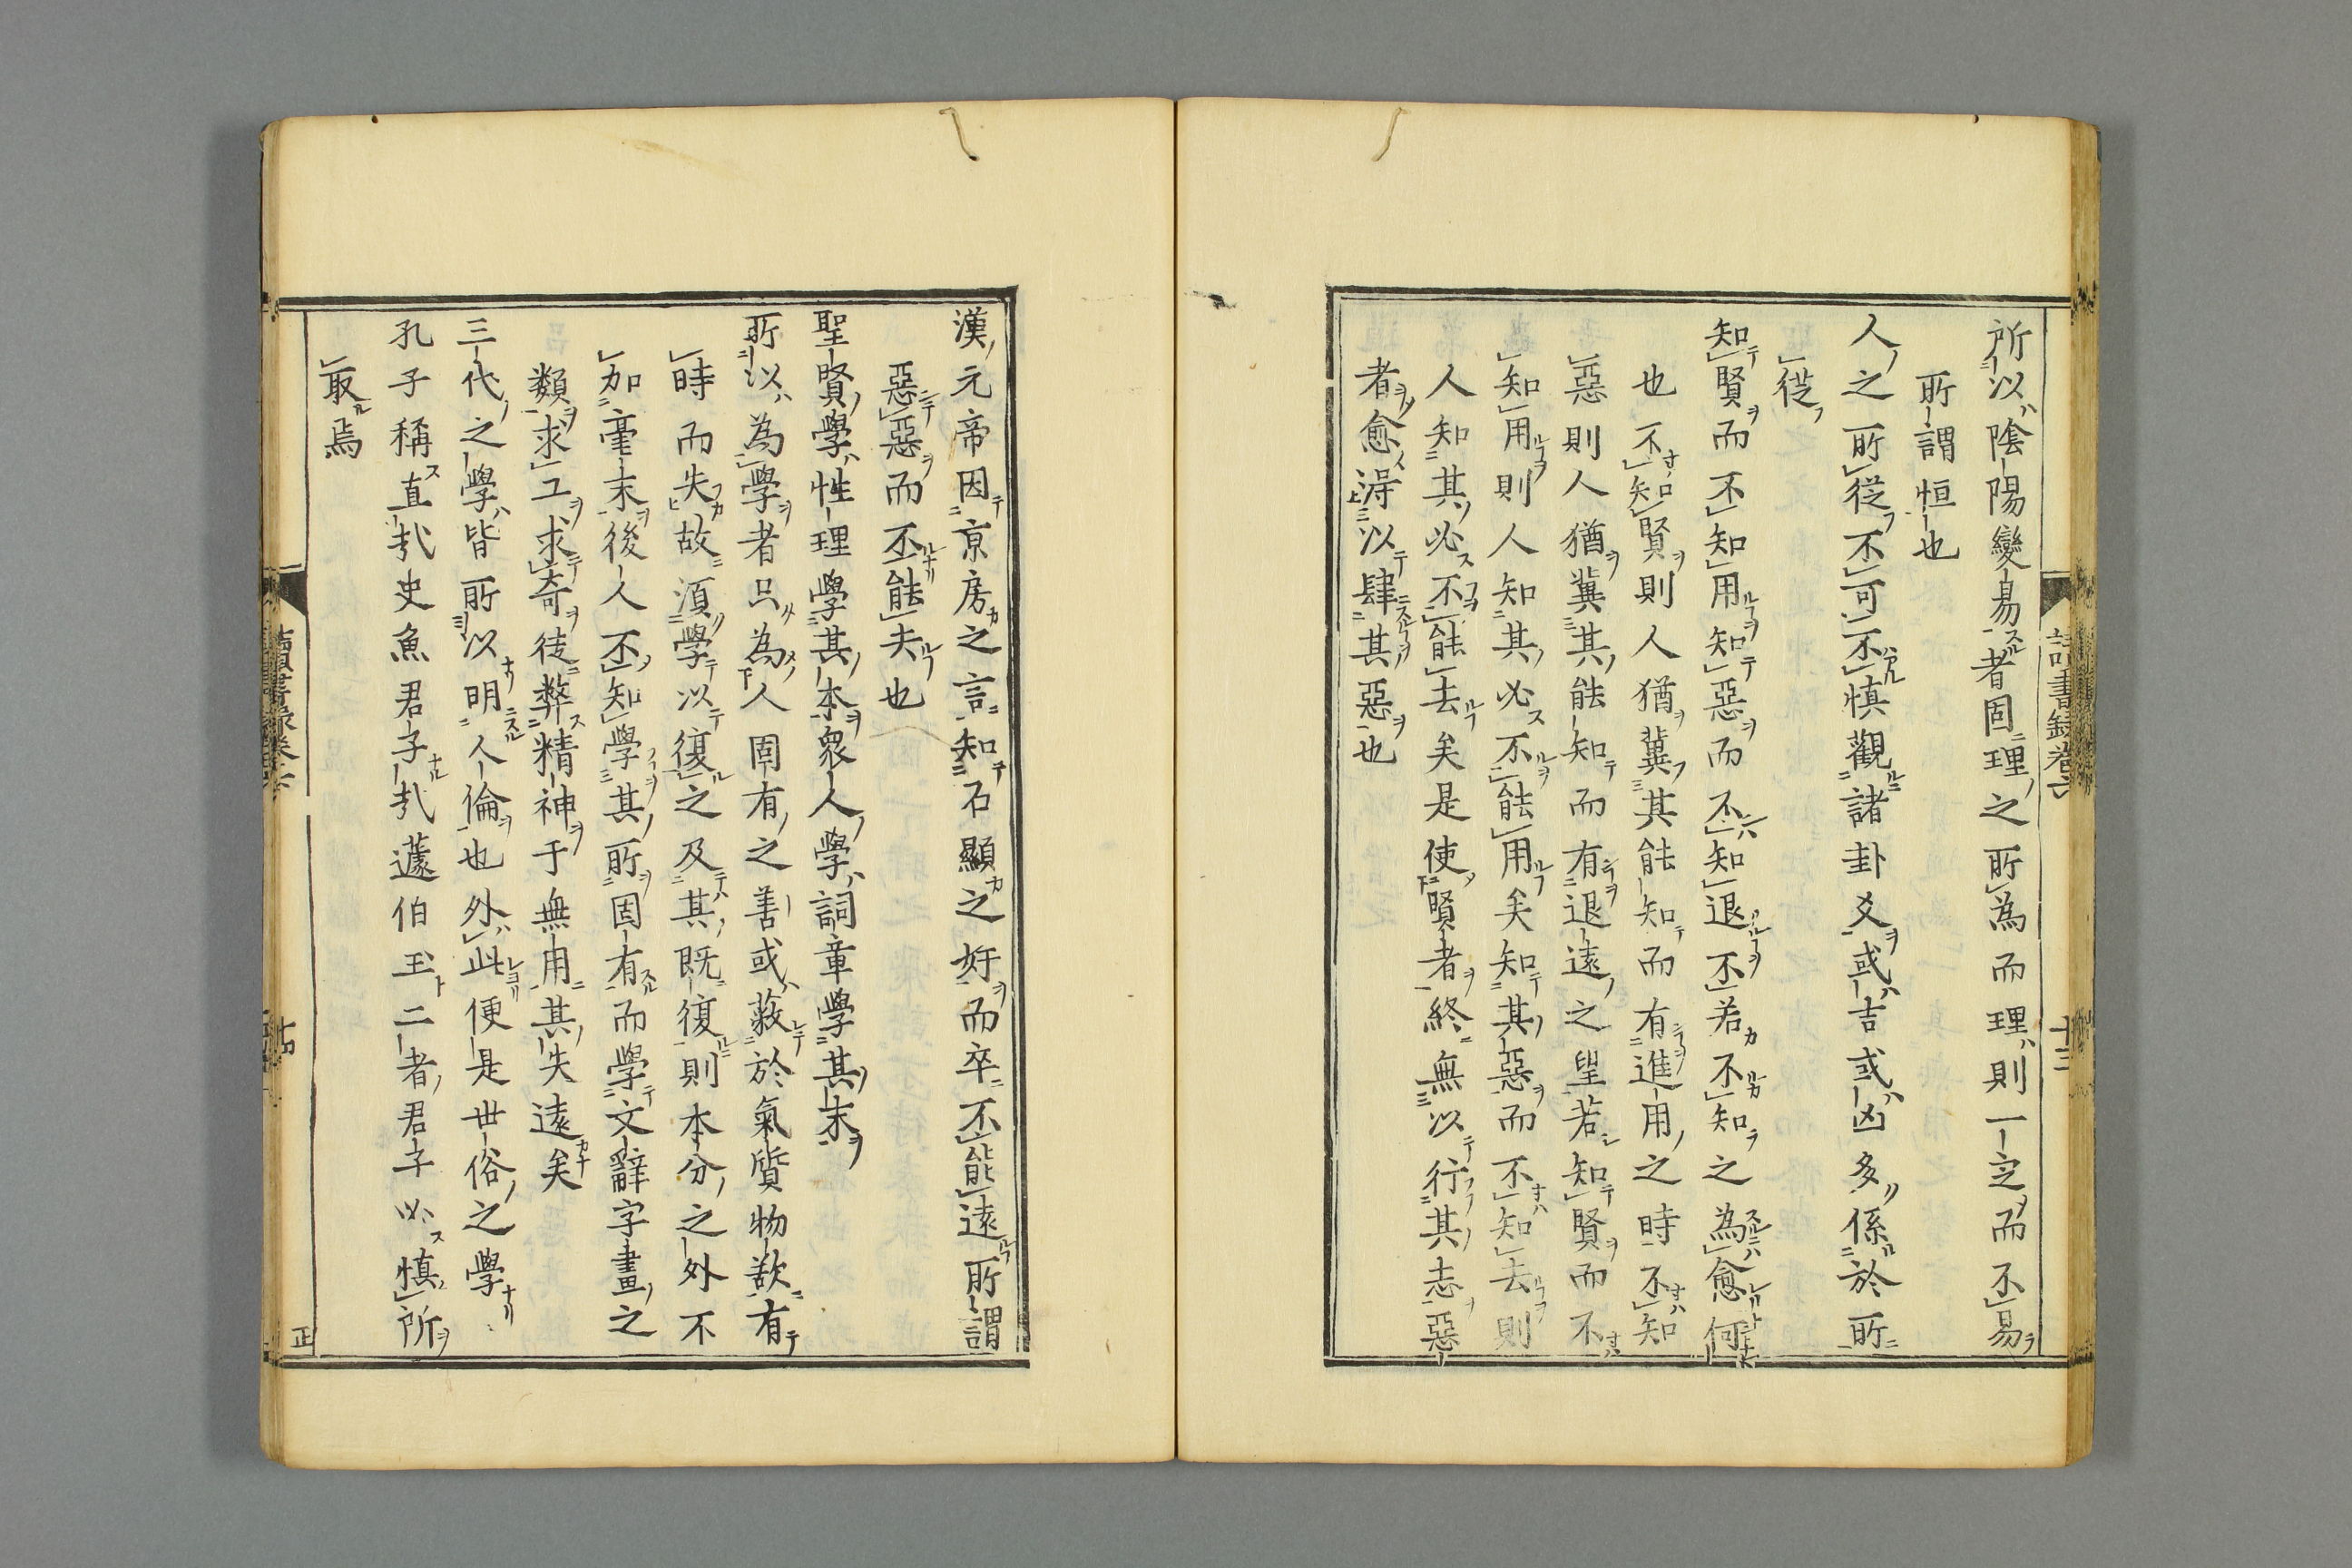 讀書録卷六
十三
所以陰陽變易者固理之所為而理則一定而不易
所謂恒也
人之所從不可不慎觀諸卦爻或吉或凶多係於所
從
知賢而不知用知惡而不知退不若不知之為愈何
也不知賢則人猶冀其能知而有進用之時不知
惡則人猶冀其能知而有退遠之望若知賢而不
知用則人知其必不能用矣知其惡而不知去則
人知其必不能去矣是使賢者終無以行其志惡
者愈得以肆其惡也
漢元帝因京房之言知石顯之奸而卒不能遠所謂
惡惡而不能去也
聖賢學性理學其本衆人學詞章學其末
所以為學者只為人固有之善或蔽於氣質物欲有
時而失故須學以復之及其既復則本分之外不
加毫末後人不知學其所固有而學文辭字畫之
類求工求奇徒弊精神于無用其失遠矣
三代之學皆所以明人倫也外此便是世俗之學
孔子稱直哉史魚君子哉蘧伯玉二者君子必慎所
取焉
讀書録卷六
十四
正